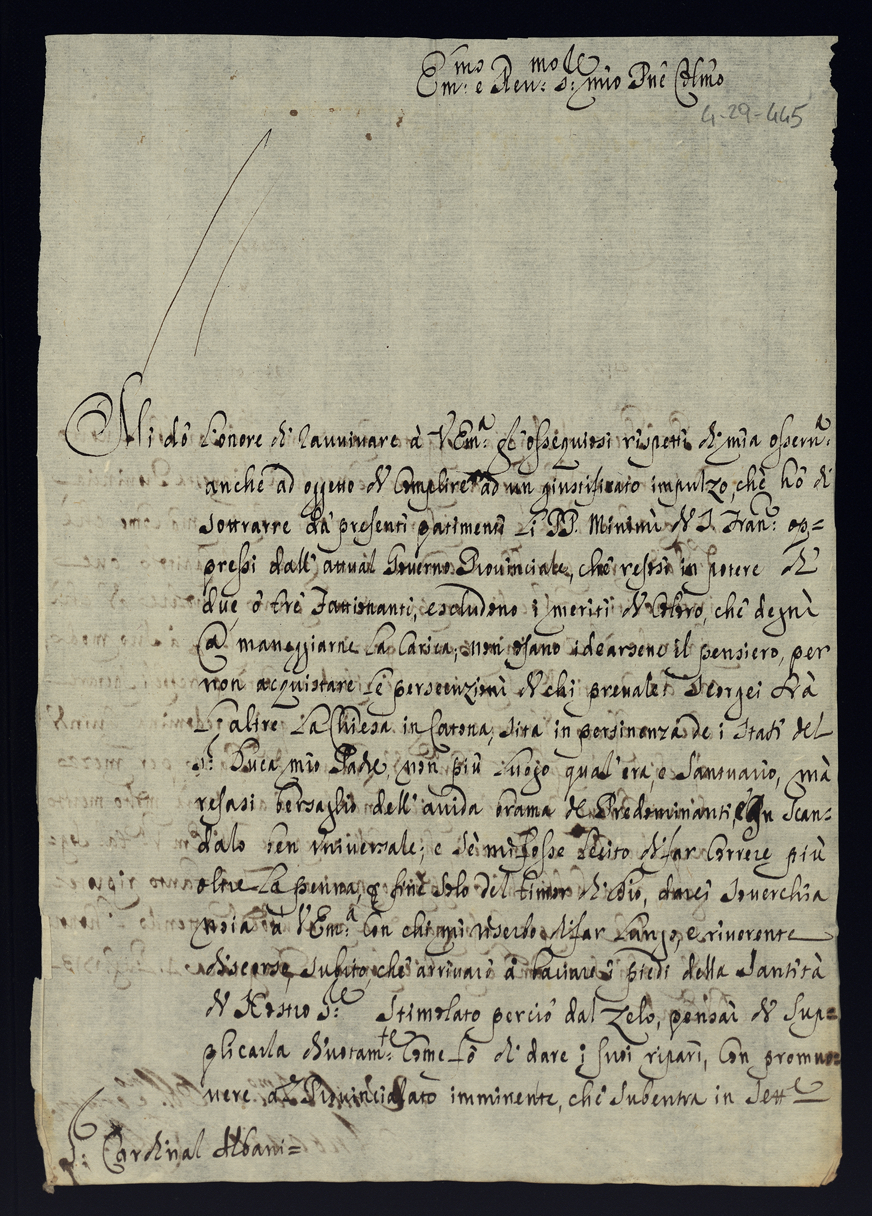 Em.mo e Rev.mo S.r mio Pne Colmo
4-29-445
Mi dò l'onore di ravvivare à V Em.a gl'ossequiosi rispetti di mia osserv.a
anche ad oggetto di Complire ad un giustificato impulzo, che hò di
sottrarre da presenti patimenti li PP. Minimi di S. Fran.o op=
pressi dall'attual Governo Provinciale, che resosi in potere di
due ò trè Fattionanti, escludono i meriti di Coloro, che degni
a maneggiarne La Carica, non osano idearsene il pensiero, per
non acquistare le persecuzioni di chi prevale. Scorgei frà
L'altre La Chiesa in Catona, sita in pertinenza de i Stati del
S.r Duca mio Padre, non più luogo qual'era, e Santuario, mà
resasi bersaglio dell'avida brama de Predominanti, in Scan=
dalo ben universale; e sè mi fosse lecito di far Correre più
oltre La penna, à fine solo del timor di Dio, darei soverchia
noia à V Em.a Con chi mi riserbo di far Lungo, e riverente
discorso, subito, che arrivarò à baciare i piedi della Santità
di Nostro S.re Stimolato perciò dal Zelo, pensai di sup=
plicarla divotam.te Come fò di dare i suoi ripari, Con promuo=
vere al Provincialato imminente, che subentra in Sett.e
S.r Cardinal Albani=